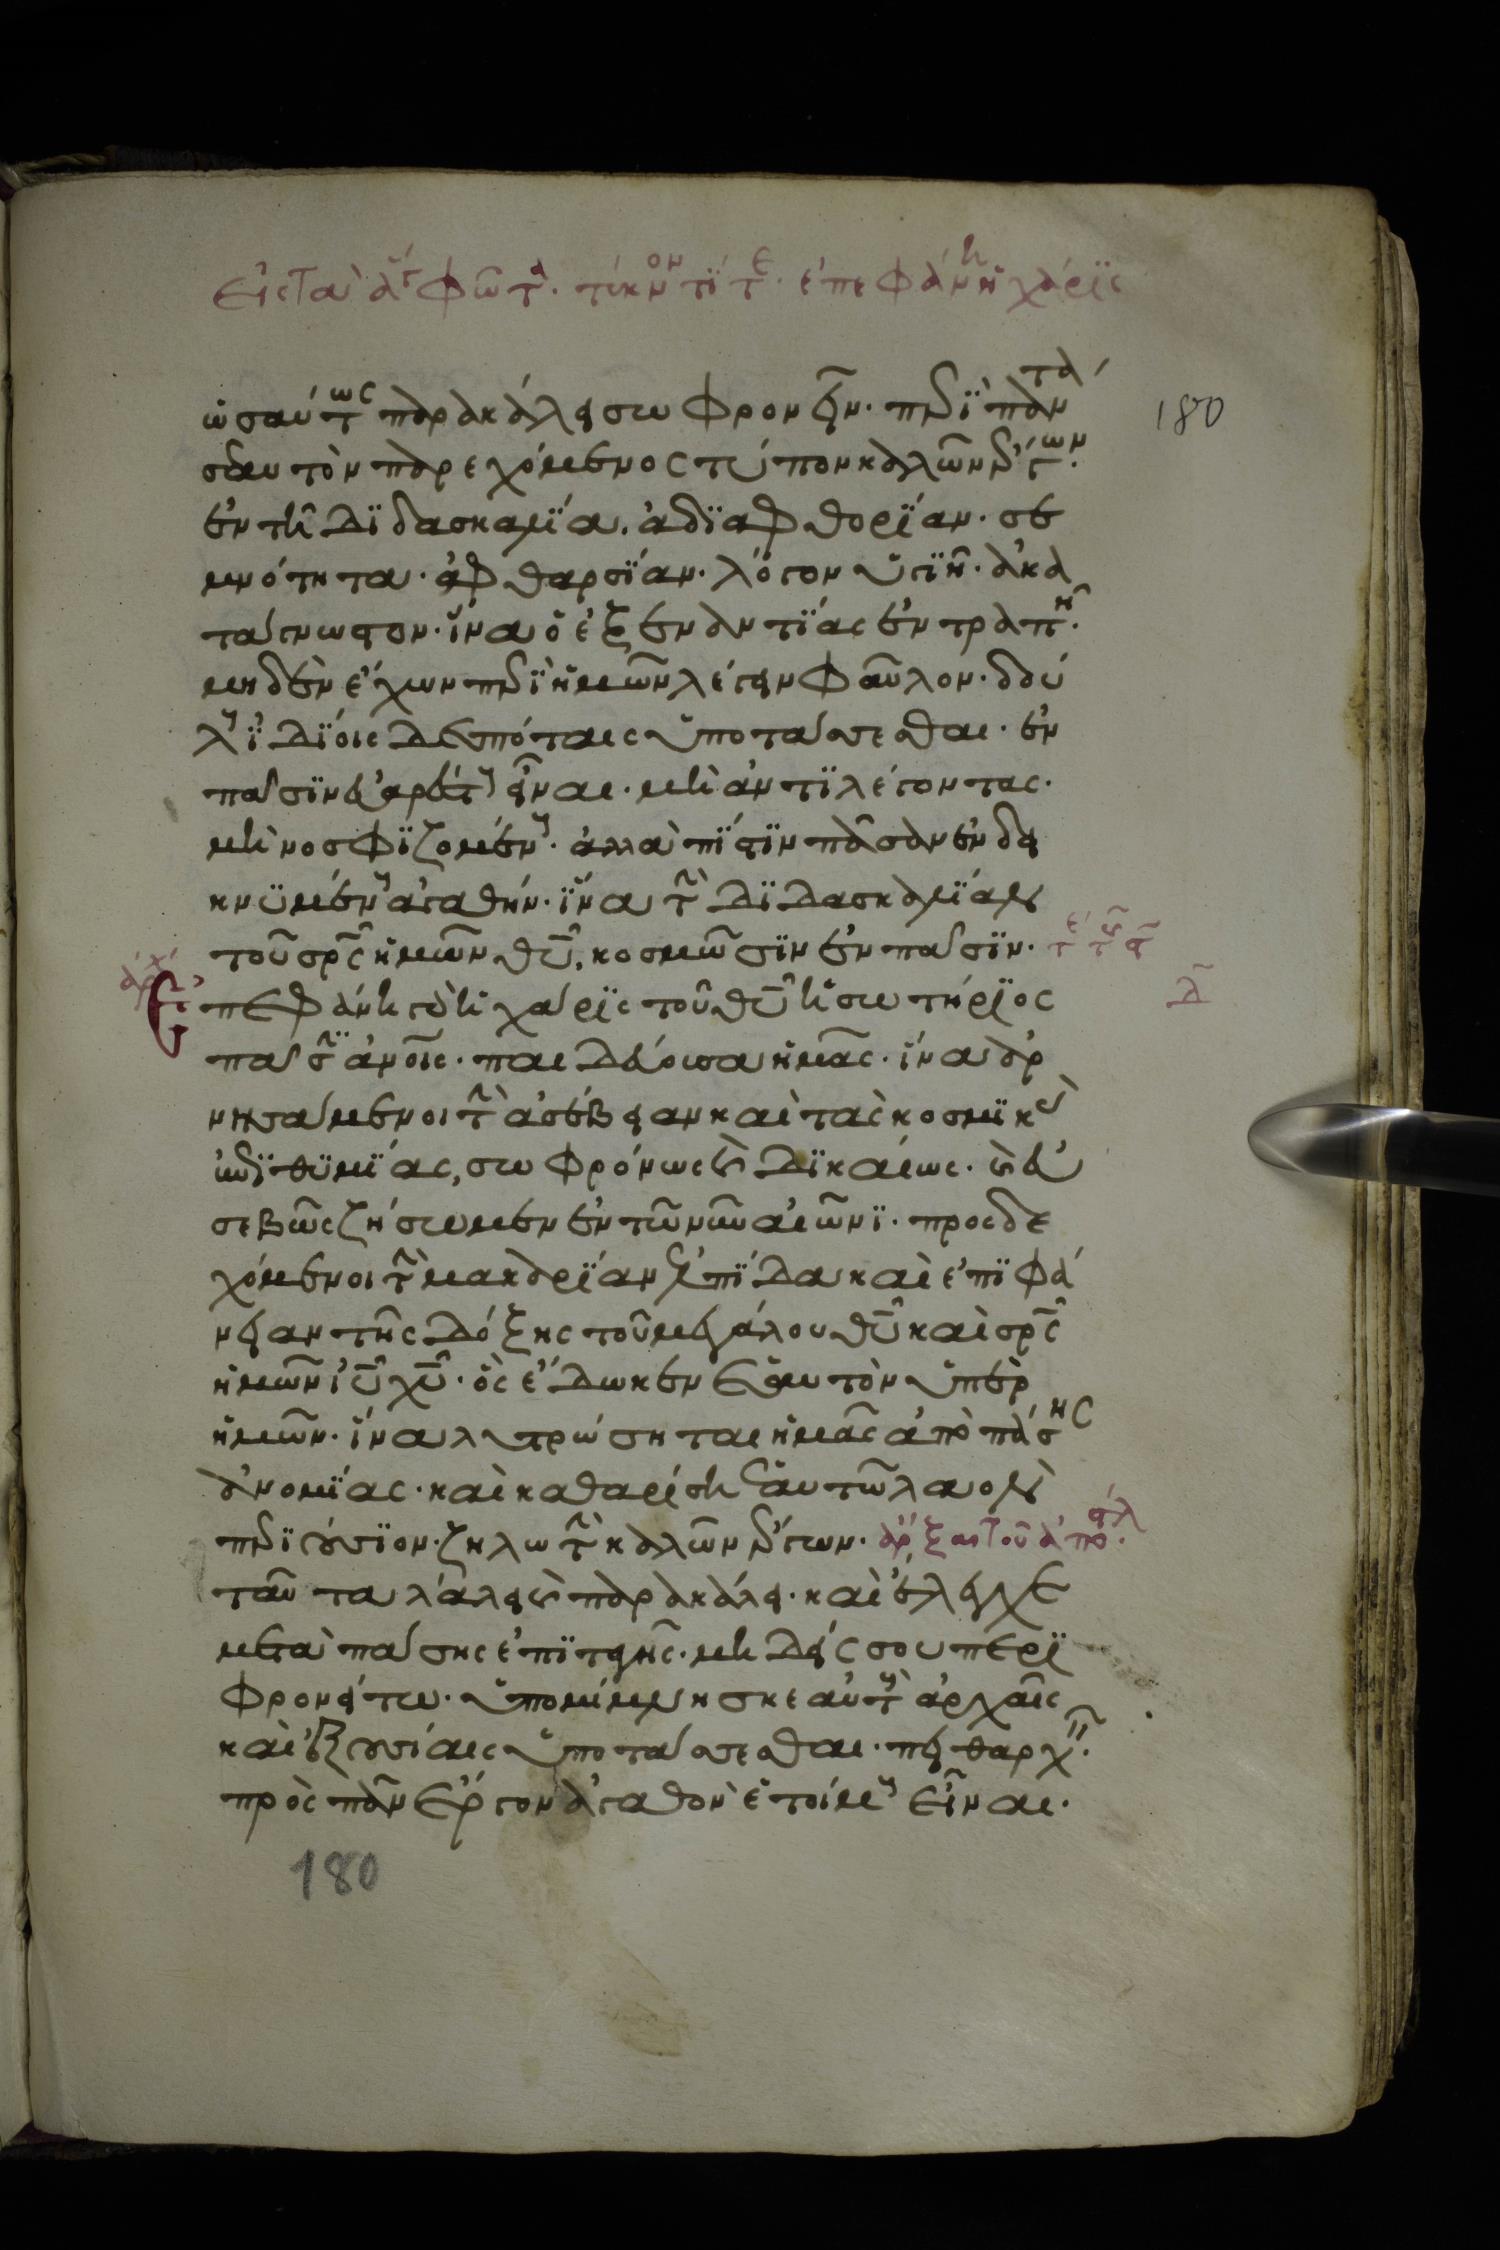 εἰς τὰ ἅγ φῶτα. τέκνον τίτε. ἐπεφάνη ἡ χάρϊς
ὡσαύτως παρακάλει σωφρονεῖν. περῒ πάντα
σεαυτὸν παρεχόμενος τύπον καλῶν ἔργων.
ἐν τῆ διδασκαλΐα. ἀδϊαφθορΐαν. σε
μνότητα. ἀφθαρσΐαν. λόγον ὑγιῆ. ἀκα
τάγνωστον. ἵνα ὁ ἐξ ἐναντΐας ἐντραπῆ.
μηδὲν ἔχων περῒ ἡμῶν λέγειν φαῦλον. δού
λους ἰδΐοις δεσπόταις ὑποτάσσεσθαι. ἐν
πᾶσϊν εὐαρέστους εἶναι. μὴ ἀντϊλέγοντας.
μὴ νοσφϊζομένους. ἀλλὰ πΐστϊν πᾶσαν ἐνδει
κνϋμένους ἀγαθήν. ἵνα τὴν δϊδασκαλΐαν
τοῦ σρ̅ς ἡμῶν θυ̅, κοσμῶσϊν ἐν πᾶσϊν.
180
ἀρχ
Ἐπεφάνη γὰρ ἡ χάρϊς τοῦ θυ̅ ἡ σωτήρϊος
πᾶσϊν ἀνοις. παιδεύουσα ἡμᾶς. ἵνα ἀρ
νησάμενοι τὴν ἀσέβειαν καὶ τὰς κοσμϊκὰς
ἐπϊθϋμΐας, σωφρόνως καὶ δϊκαίως. καὶ εὐ
σεβῶς ζήσωμεν ἐν τῶ νῦν αἰῶνϊ. προσδε
χόμενοι τὴν μακαρΐαν ἐλπΐδα καὶ ἐπϊφά
νειαν τῆς δόξης τοῦ μεγάλου θυ̅ καὶ σρ̅ς
ἡμῶν ιυ̅ χυ̅. ὃς ἔδωκεν ἑαυτὸν ὑπὲρ
ἡμῶν. ἵνα λυτρώσηται ἡμᾶς ἀπὸ πάσης
ἀνομΐας. καὶ καθαρίση ἑαυτῶ λαὸν
περϊούσϊον. ζηλωτὴν καλῶν ἔργων.
ταῦτα λάλει καὶ παρακάλει. καὶ ἔλεγχε
μετὰ πάσης ἐπϊταγῆς. μηδείς σου περϊ
φρονείτω. ὑπομίμνησκε αὐτοὺς ἀρχαῖς
καὶ ἐξουσίαις ὑποτάσσεσθαι. πειθαρχεῖν.
πρὸς πᾶν ἔργον ἀγαθὸν ἑτοίμους εἶναι.
180